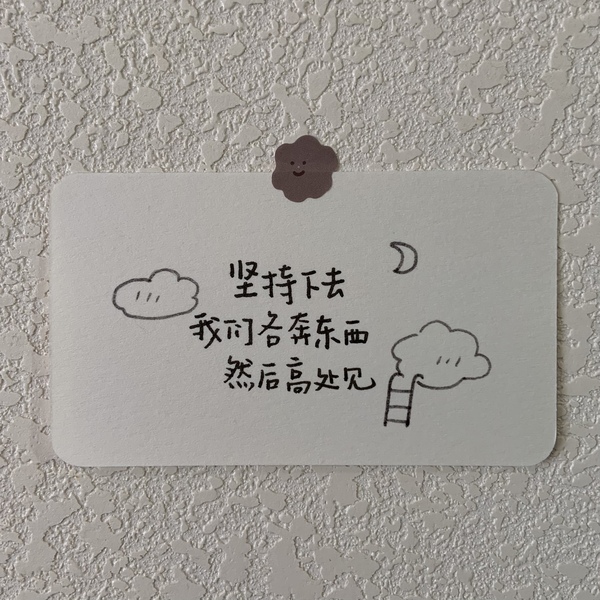 坚持下去
我们各奔东西
然后高处见